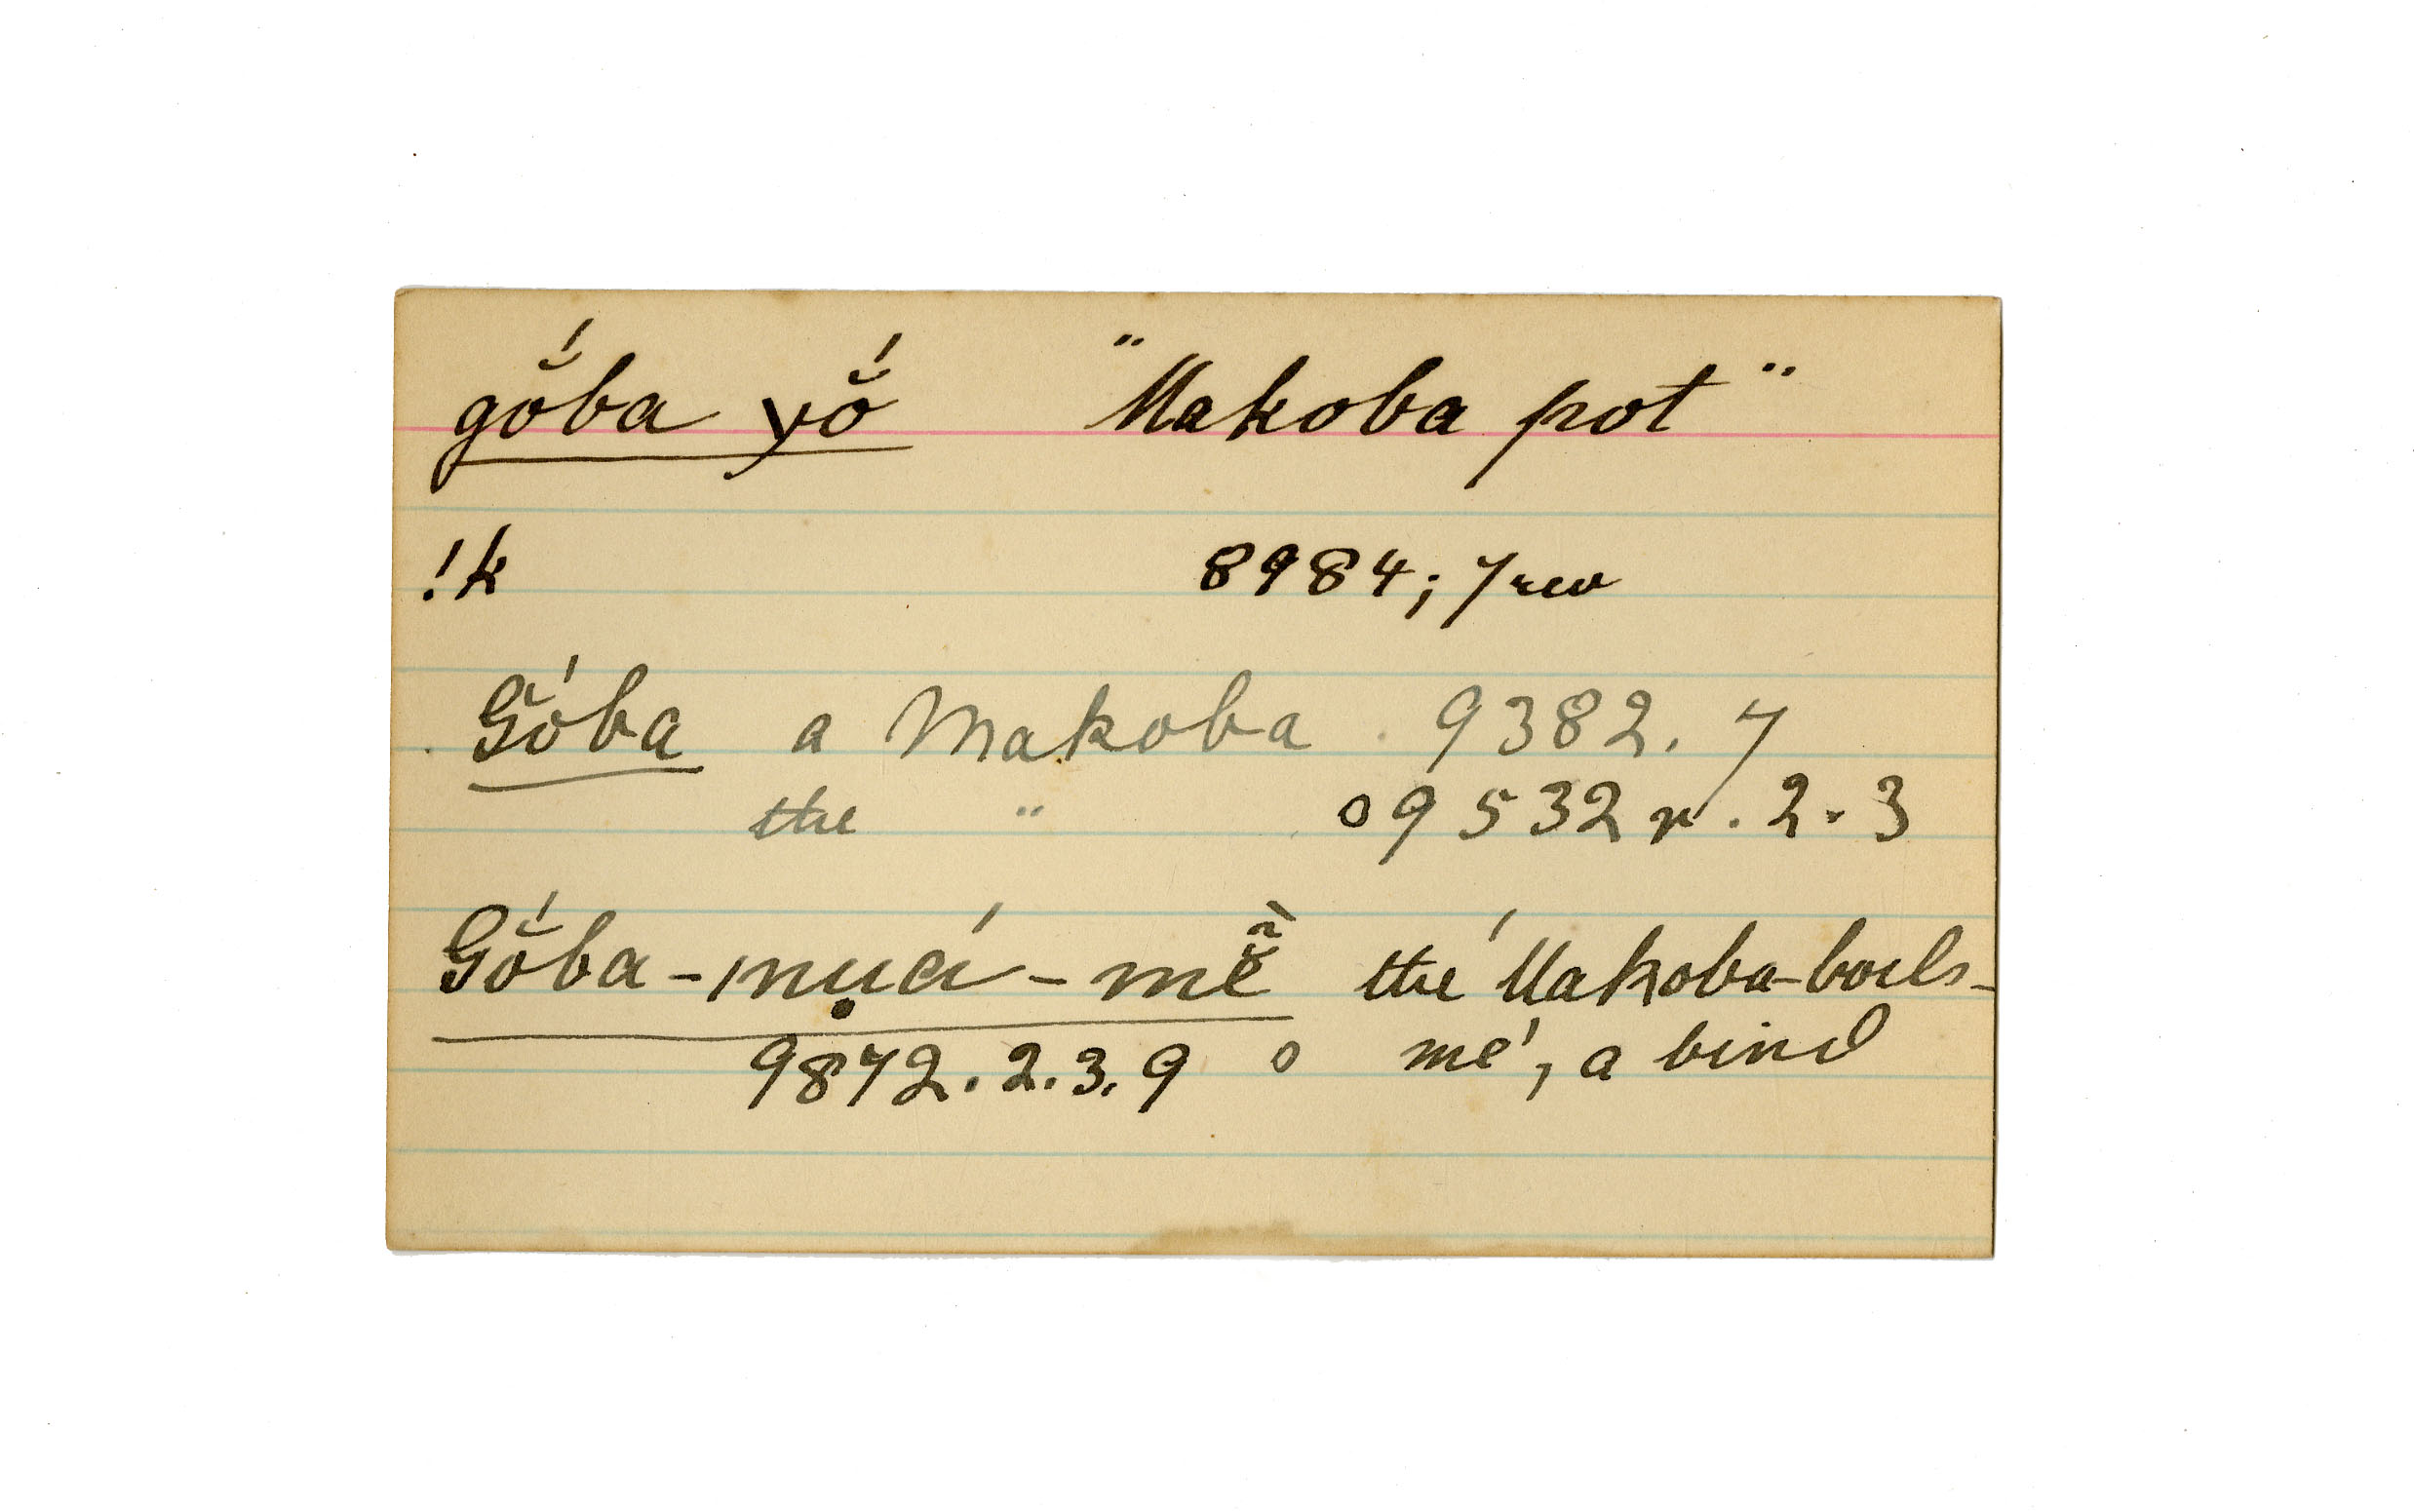 gŏ́ba yŏ́ "Makoba pot"
!k 8984; 7rev
Gŏ́ba a Makoba 9382.7
the " o 9532 r. 2. 3
Gŏ́ba-ṃuá-mĕ̃ the Makoba-boils-
9872. 2. 3. 9 o me', a bird